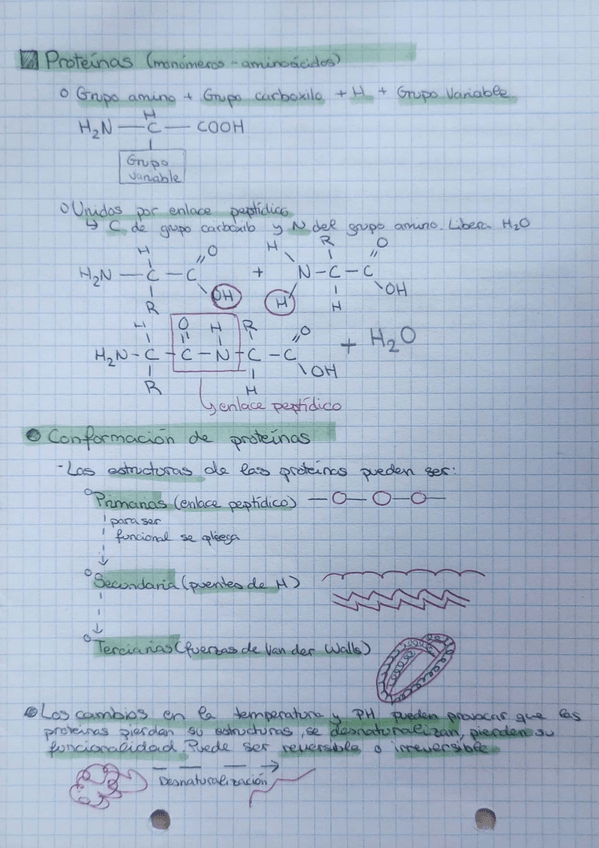 Proteínas (monómeros - aminoácidos)
Grupo amino + Grupo carboxilo + H + Grupo Variable
H
H₂N — C — COOH
Grupo
variable
Unidos por enlace peptídico
↳ C de grupo carboxilo y N del grupo amino. Libera H₂O
H O H R O
H₂N — C — C + N - C - C
R OH H H OH
H O H R O
H₂N - C - C - N - C - C + H₂O
R H OH
enlace peptídico
Conformación de proteínas
- Las estructuras de las proteínas pueden ser:
Primarias (enlace peptídico)
para ser
funcional se pliega
Secundaria (puentes de H)
Terciarias (fuerzas de Van der Walls)
Los cambios en la temperatura y PH pueden provocar que las
proteínas pierdan su estructuras, se desnaturalizan, pierden su
funcionalidad. Puede ser reversible o irreversible
Desnaturalización